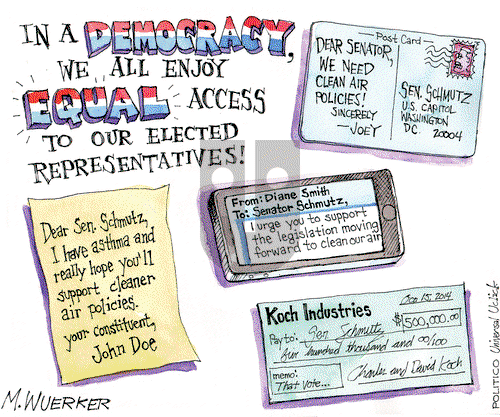 IN A DEMOCRACY,
WE ALL ENJOY
EQUAL ACCESS
TO OUR ELECTED
REPRESENTATIVES!
Post Card
DEAR SENATOR,
WE NEED
CLEAN AIR
POLICIES!
SINCERELY
—JOEY
SEN. SCHMUTZ
U.S. CAPITOL
WASHINGTON
DC.
20004
Dear Sen. Schmutz,
I have asthma and
really hope you'll
support cleaner
air policies.
your constituent,
John Doe
From: Diane Smith
To: Senator Schmutz,
I urge you to support
the legislation moving
forward to clean our air
Koch Industries
Oct 15, 2014
Pay to: Sen Schmutz
$500,000.00
five hundred thousand and 00/100
memo:
That vote...
Charles and David Koch
M.WUERKER
POLITICO Universal Uclick